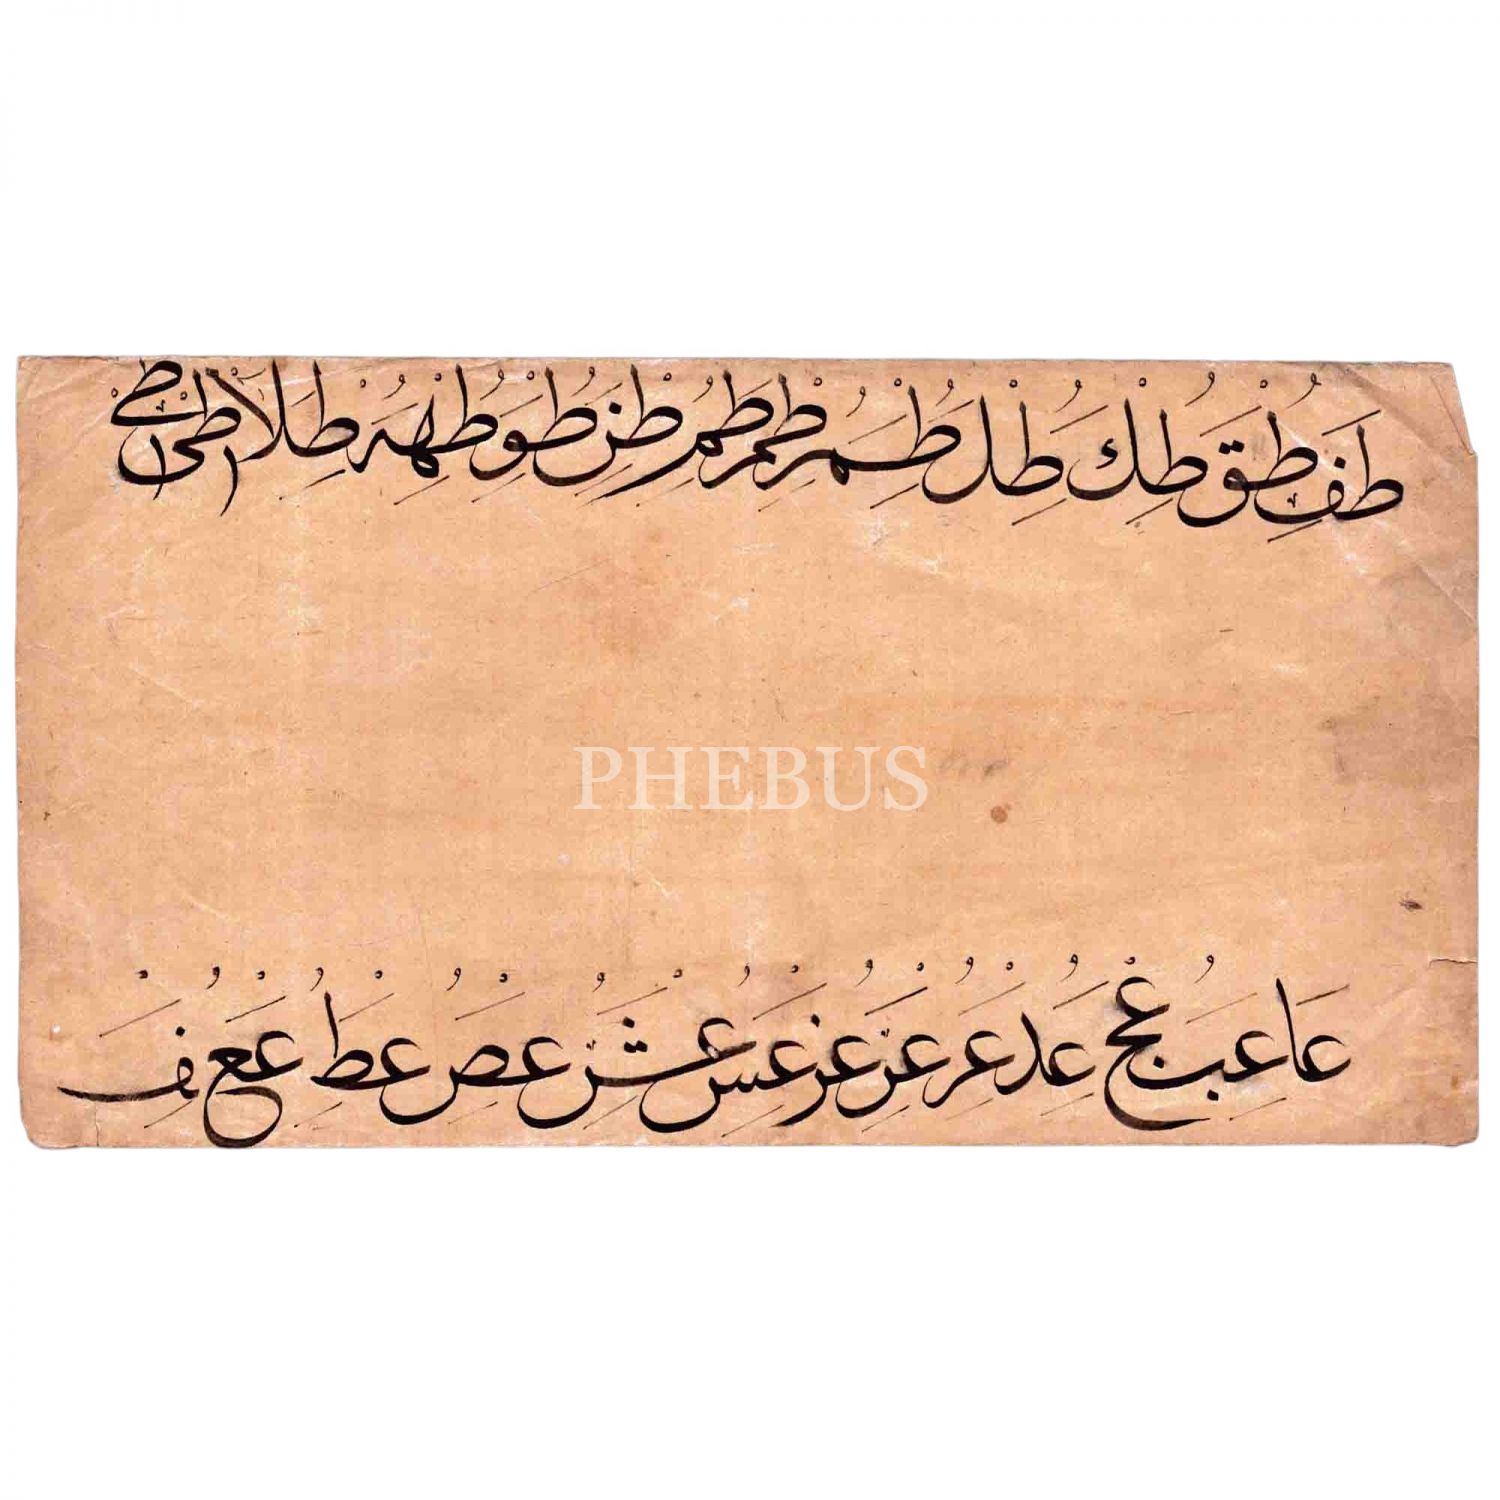 طف طق طك طل طم طم طم طن طو طه طلا طى طى
PHEBUS
عا عب عج عد عر عر عز عس عس عص عط عع ف